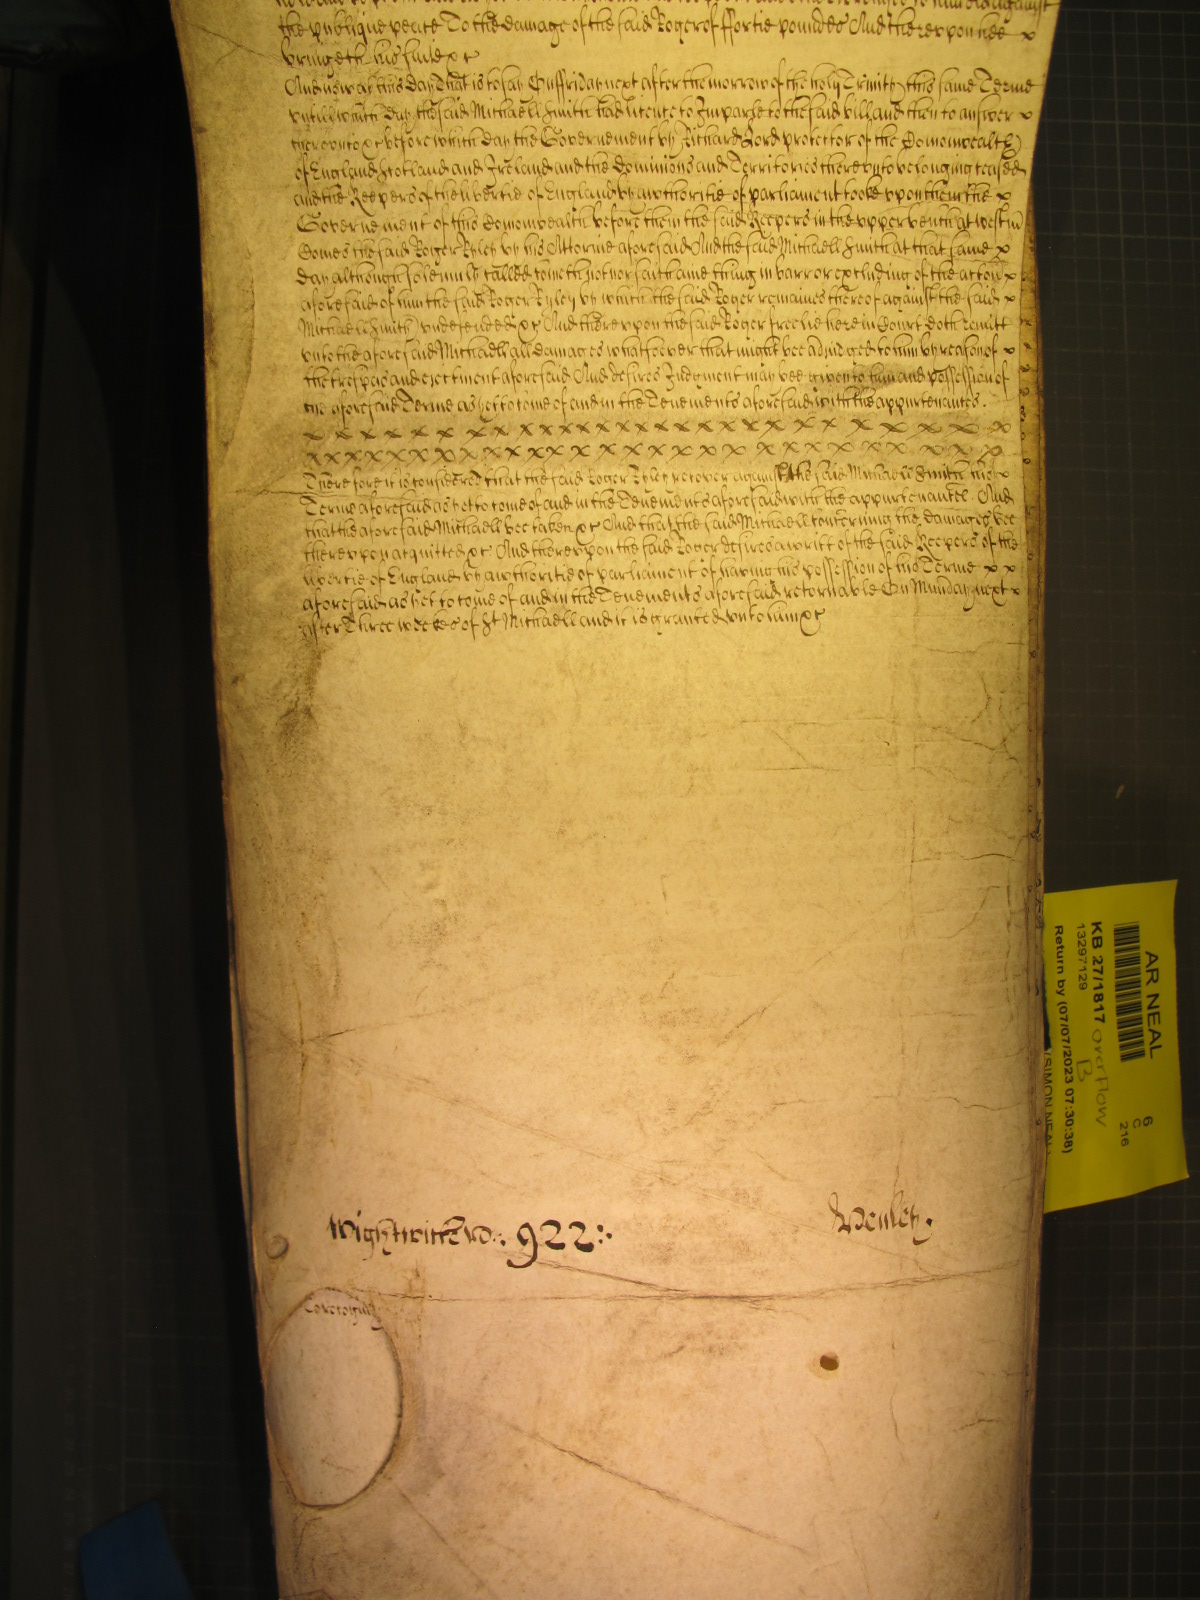 the publique peace To the damage of the said Roger of ffortie poundes And thereupon hee x
bringeth his suite xc
And now at this day That is to say On ffriday next after the morrow of the holy Trinity this same Terme
untill which day the said Michaell Smith had licence to Imparle to the said bill and then to answer x
thereunto xc before which day the Governement by Richard Lord protector of the Comonwealth
of England Scotland and Ireland and the Dominions and Territories thereunto belonging ceased
and the Keepers of the libertie of England by authoritie of parliament tooke upon them the x
Governement of this Comonwealth before them the said Keepers in the upper bench at Westm
Comes the said Roger Ryley by his Attorne aforesaid And the said Michaell Smith at that same x
day although solemnly called cometh not nor saith anie thing in barr or excluding of the accon x
aforesaid of him the said Roger Ryley by which the said Roger remaines thereof against the said x
Michaell Smith undefended xc And thereupon the said Roger freelie here in Court doth remitt
unto the aforesaid Michaell all damages whatsoever that might bee adjudged to him by reason of x
the trespas and ejectment aforesaid And desires Judgment may bee given to him and possession of
the aforesaid Terme as yet to come of and in the Tenements aforesaid with the appurtenances.
x x x x x x x x x x x x x x x x x x x x x x x x x
x x x x x x x x x x x x x x x x x x x x x x x x x
Therefore it is considered that the said Roger Ryley recover against the said Michaell Smith his x
Terme aforesaid as yet to come of and in the Tenements aforesaid with the appurtenances. And
that the aforesaid Michaell bee taken xc And that the said Michaell concerning the damages bee
thereupon acquitted xc And thereupon the said Roger desires a writt of the said Keepers of the
libertie of England by authoritie of parliament of having his possession of his Terme x x
aforesaid as yet to come of and in the Tenements aforesaid returnable On Munday next x
after Three weekes of St Michaell and it is granted unto him xc
Wightwick Ro: 922:
AR NEAL
6
C
216
KB 27/1817 overflow
B
13297129
Return by (07/07/2023 07:30:38)
(SIMON NEAL)